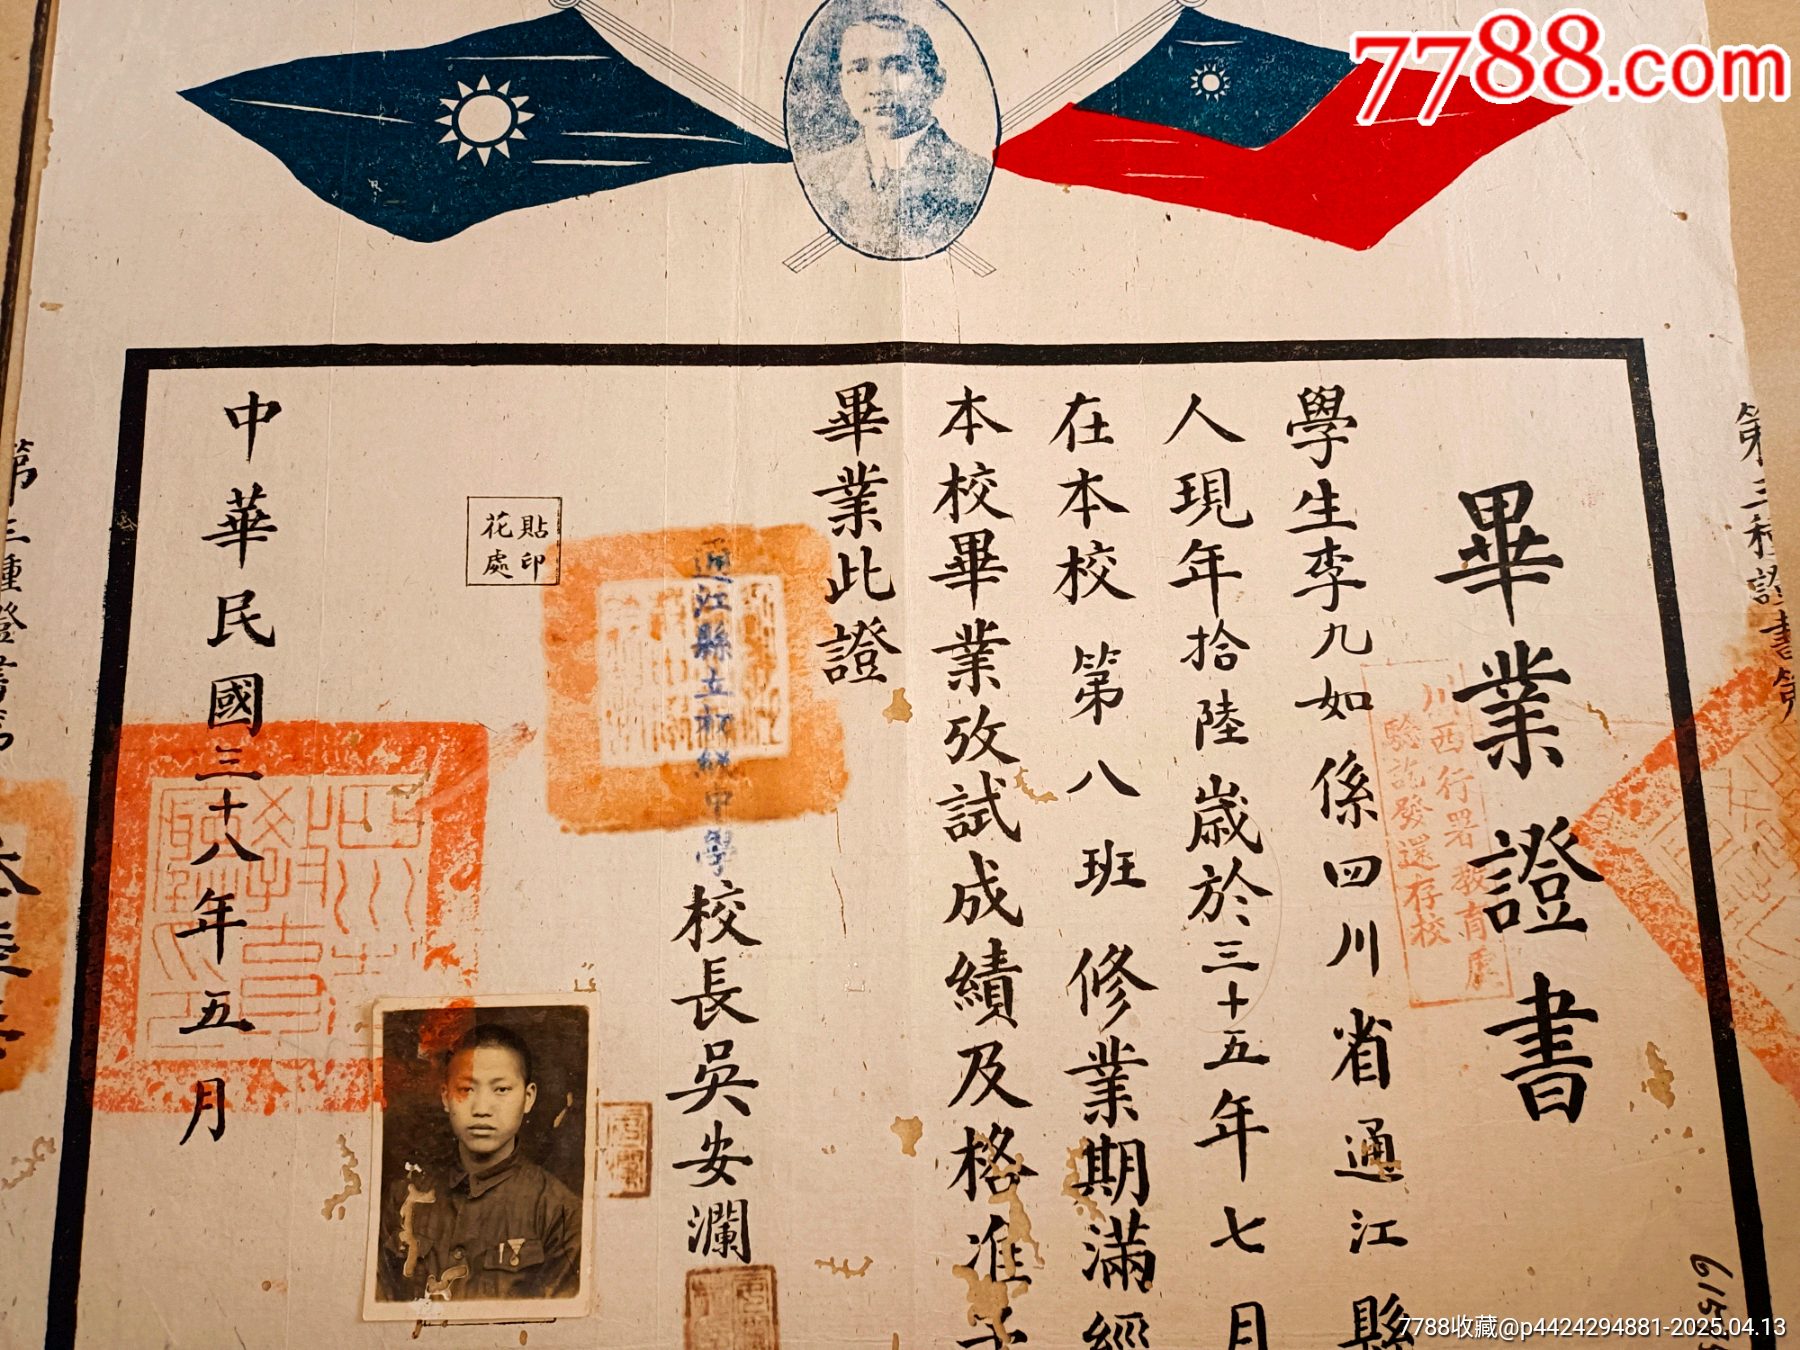 7788.com
畢業證書
學生李九如係四川省通江縣
人現年拾陸歲於三十五年七月
在本校第八班修業期滿經
本校畢業攷試成績及格准予
畢業此證
校長吳安瀾
貼印
花處
中華民國三十八年五月
川西行署教育廳
驗訖發還存校
通江縣立初級中學
第三種證書第
第三種證書第
7788收藏@p4424294881-2025.04.13